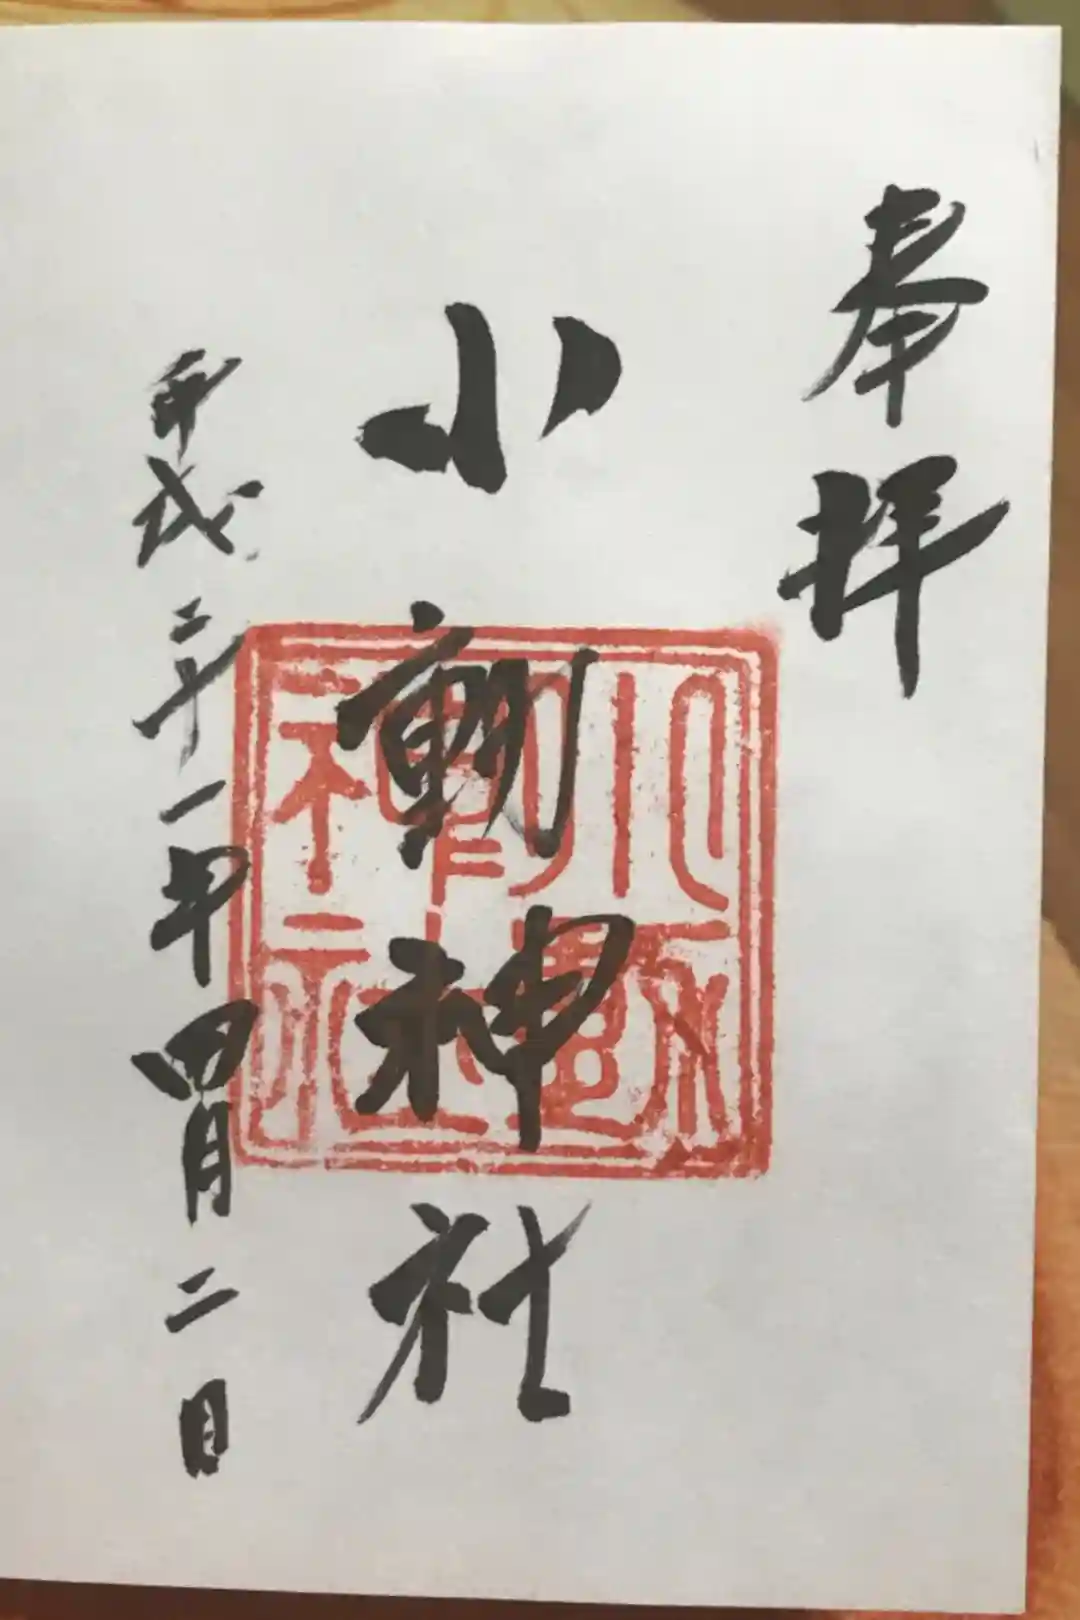 奉拝
小動神社
平成三十一年四月二日
小動神社